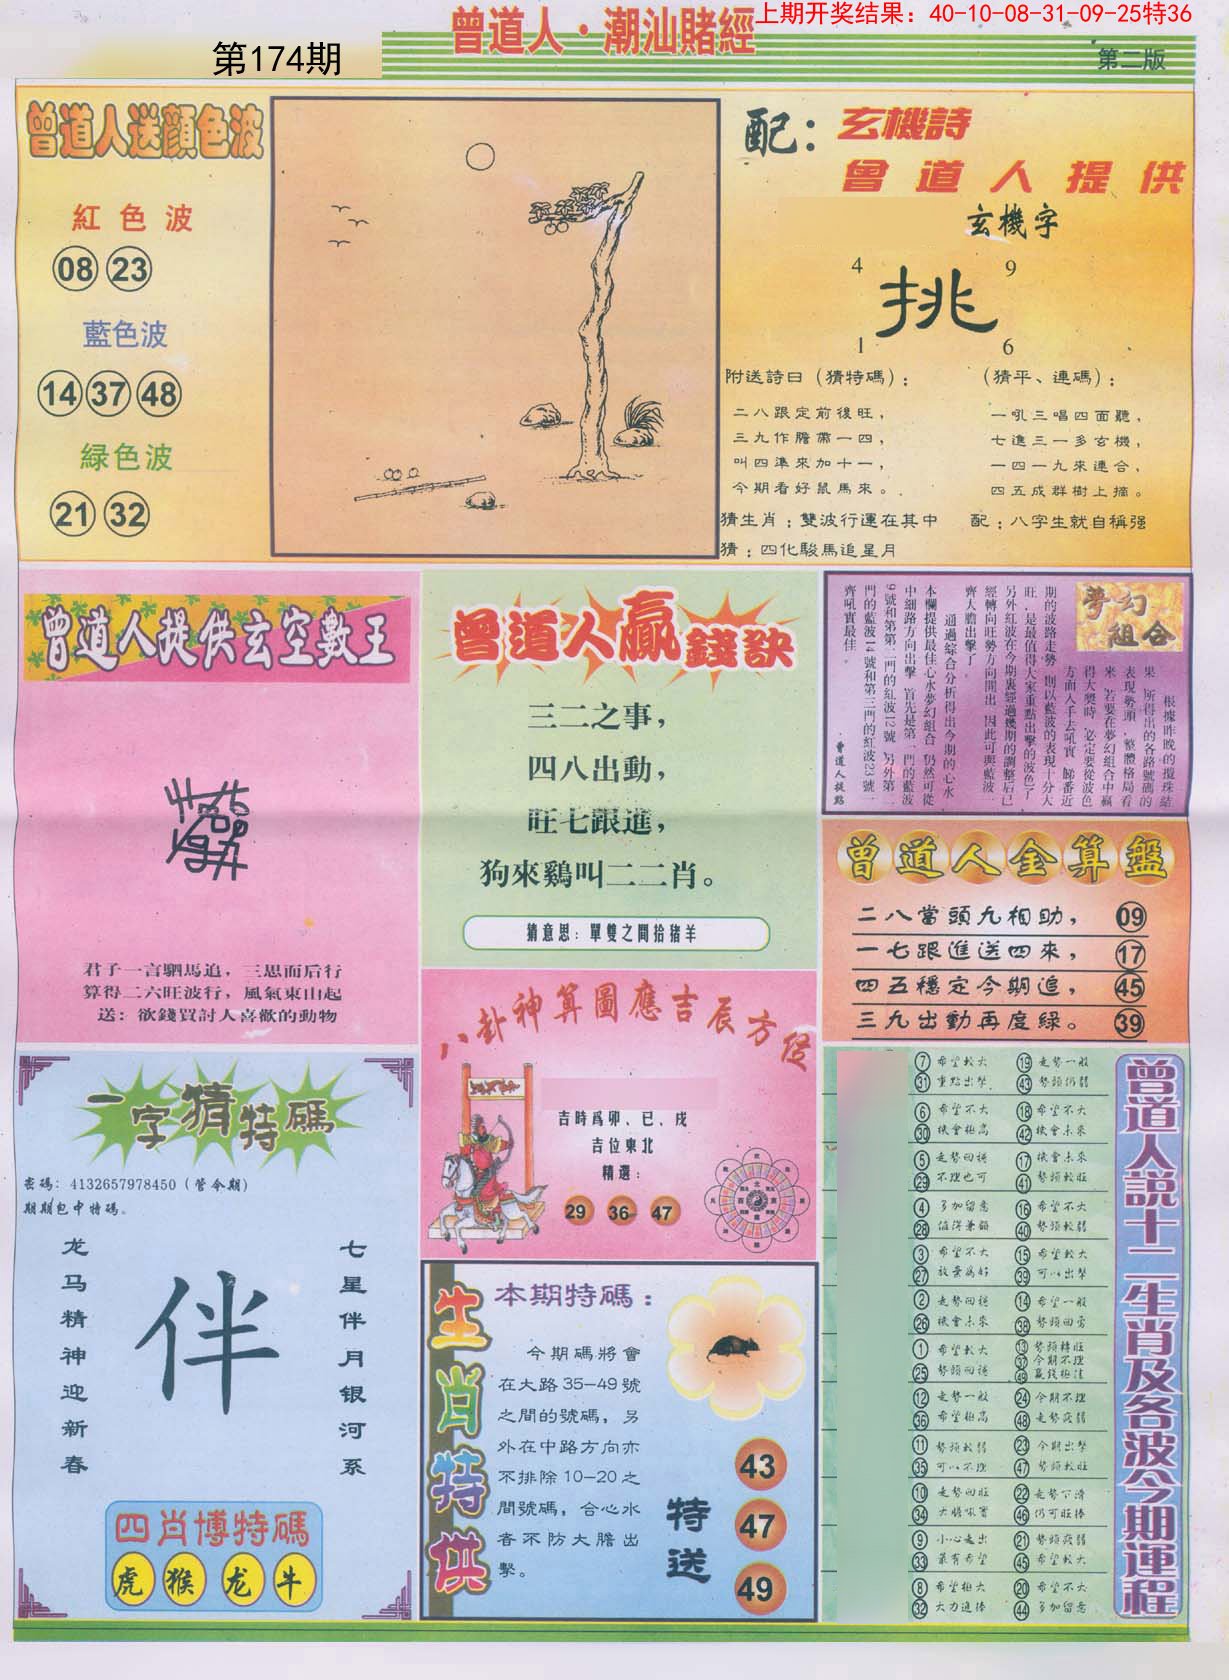 曾道人·潮汕賭經
上期开奖结果：40-10-08-31-09-25特36
第174期
第二版
曾道人送顔色波
紅色波
08 23
藍色波
14 37 48
緑色波
21 32
配：玄機詩
曾道人提供
玄機字
4 9
挑
1 6
附送詩曰（猜特碼）：
二八跟定前後旺，
三九作膽帶一四，
叫四準來加十一，
今期看好鼠馬來。
猜生肖：雙波行運在其中
猜：四化駿馬追星月
（猜平、連碼）：
一吼三唱四面聽，
七進三一多玄機，
一四一九來連合，
四五成群樹上摘。
配：八字生就自稱强
曾道人提供玄空數王
君子一言駟馬追，三思而后行
算得二六旺波行，風氣東山起
送：欲錢買討人喜歡的動物
曾道人贏錢訣
三二之事，
四八出動，
旺七跟進，
狗來鷄叫二二肖。
猜意思：單雙之間拾猪羊
夢幻組合
根據昨晚的攪珠結
果，所得出的各路號碼的
表現勢頭，整體格局看
來，若要在夢幻組合中贏
得大獎時，必定要從波色
方面入手去吼實，睇番近
期的波路走勢，則以藍波的表現十分大
旺，是最值得大家重點出擊的波色了，
另外紅波在今期裏經過幾期的調整后已
經轉向旺勢方向開出，因此可與藍波一
齊大膽出擊了。
通過綜合分析得出今期的心水，
本欄提供最佳心水夢幻組合，仍然可從
中細路方向出擊，首先是第一門的藍波
9號和第第二門的紅波12號，另外第二
門的藍波14號和第三門的紅波23號一
齊吼實最佳。
·曾道人提點
曾道人金算盤
二八當頭九相助， 09
一七跟進送四來， 17
四五穩定今期追， 45
三九出動再度緑。 39
八卦神算圖應吉辰方位
吉時爲卯、巳、戌
吉位東北
精選：
29 36 47
一字猜特碼
密碼：4132657978450（管令期）
期期包中特碼。
龙马精神迎新春
伴
七星伴月银河系
四肖博特碼
虎 猴 龙 牛
生肖特供
本期特碼：
今期碼將會
在大路35—49號
之間的號碼，另
外在中路方向亦
不排除10—20之
間號碼，合心水
者不防大膽出
擊。
特送
43
47
49
曾道人説十二生肖及各波今期運程
7 希望較大 19 走勢一般
31 重點出擊 43 勢頭仍弱
6 希望不大 18 希望不大
30 機會極高 42 機會未來
5 走勢回穩 17 機會未來
29 不理也可 41 勢頭較旺
4 多加留意 16 希望不大
28 值得兼顧 40 勢頭較弱
3 希望不大 15 希望較大
27 放棄爲好 39 可以出擊
2 走勢回穩 14 希望一般
26 機會未來 38 勢頭回落
1 希望較大 13 勢頭轉旺
37 今期不理
25 勢頭回穩 49 贏錢極佳
12 走勢一般 24 今期不理
36 希望極高 48 走勢疲弱
11 勢頭較弱 23 今期出擊
35 可以不理 47 勢頭較旺
10 走勢回旺 22 走勢下滑
34 大膽吼實 46 仍可旺捧
9 小心走出 21 勢頭疲弱
33 最有希望 45 希望較大
8 希望極大 20 希望不大
32 大力追捧 44 多加留意